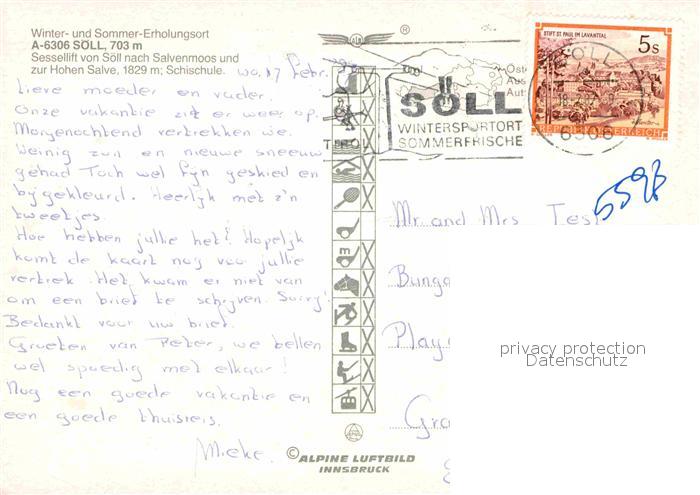 Winter- und Sommer-Erholungsort
A-6306 SÖLL, 703 m
Sessellift von Söll nach Salvenmoos und
zur Hohen Salve, 1829 m; Schischule.
wo. 17 Febr.
Lieve moeder en vader.
Onze vakantie zit er weer op.
Morgenochtend vertrekken we.
Weinig zon en nieuwe sneeuw
gehad Toch wel fijn geskied en
bijgekleurd. Heerlijk met z'n
tweetjes.
Hoe hebben jullie het? Hopelijk
komt de kaart nog voor jullie
vertrek. Het kwam er niet van
om een brief te schrijven. Sorry!
Bedankt voor uw brief.
Groeten van Peter, we bellen
wel spoedig met elkaar!
Nog een goede vakantie en
een goede thuisreis.
Mieke.
TIROL
SÖLL
WINTERSPORTORT
SOMMERFRISCHE
Öste
Aus
Aut
STIFT ST. PAUL IM LAVANTTAL
5s
REPUBLIK ÖSTERREICH
SÖLL
6306
5598
Mr and Mrs Test
Bunga
Playa
Gra
privacy protection
Datenschutz
© ALPINE LUFTBILD
INNSBRUCK